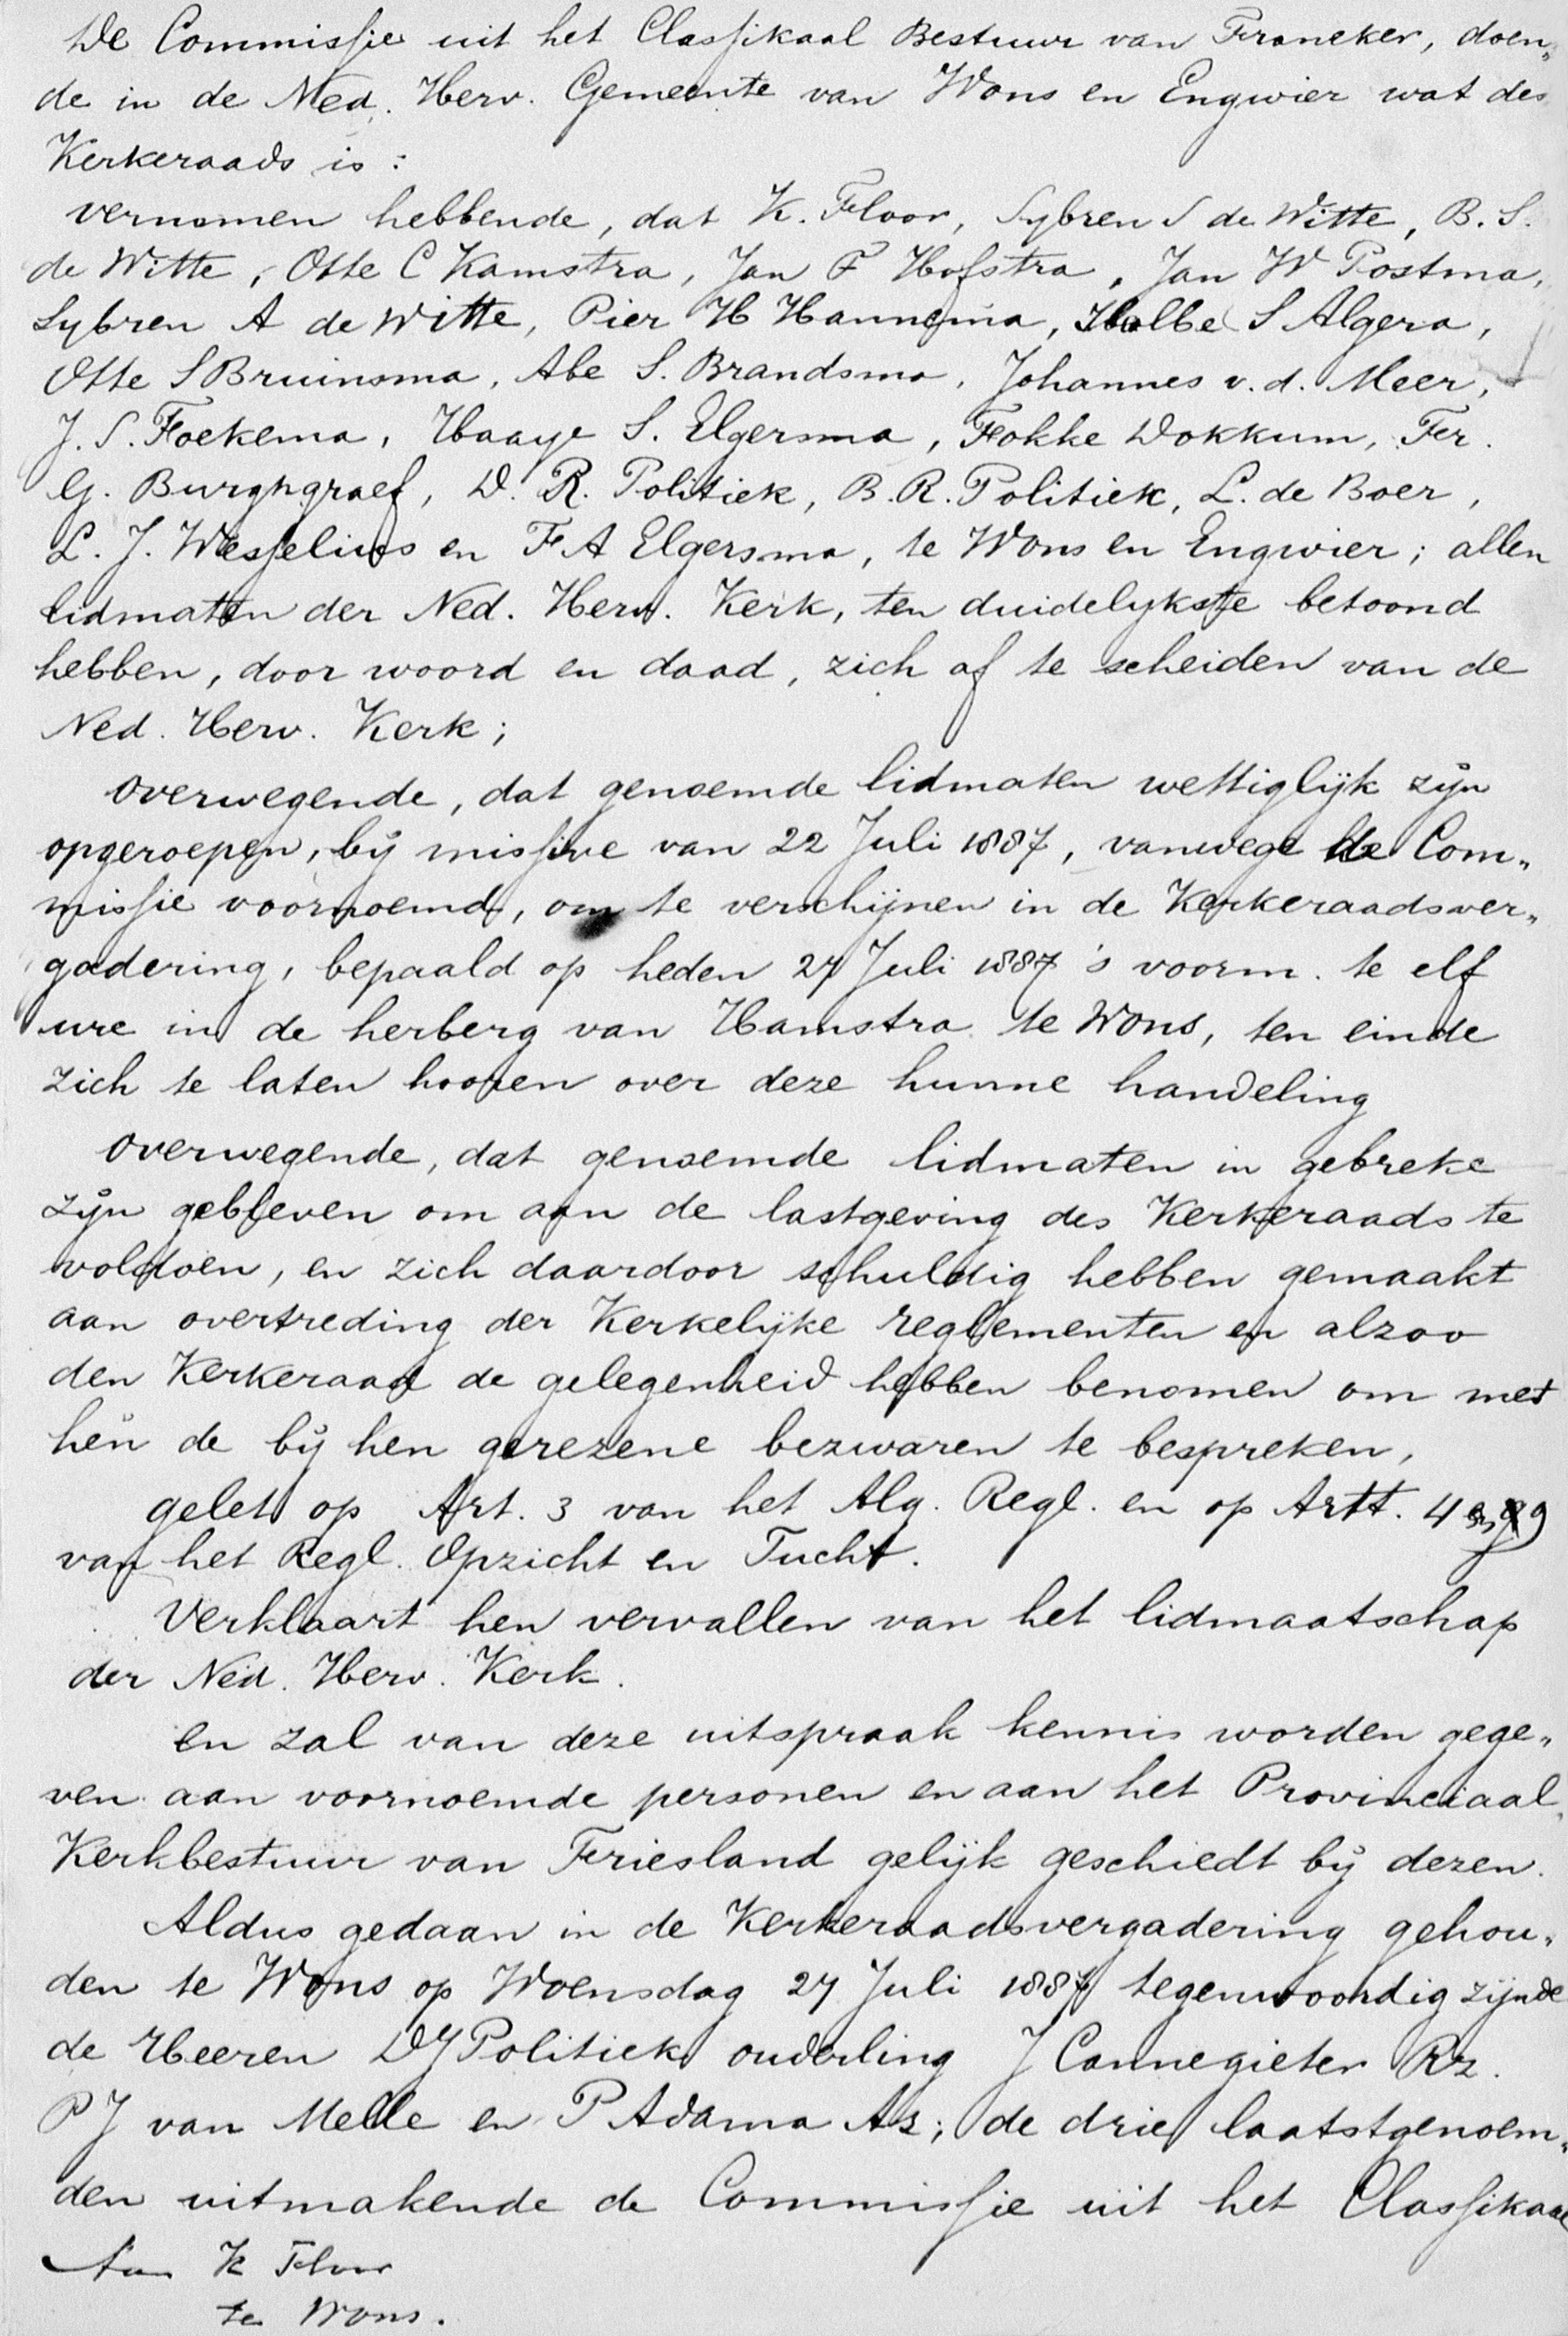 De Commissie uit het Classikaal Bestuur van Franeker, doen„
de in de Ned. Herv. Gemeente van Wons en Engwier wat des
Kerkeraads is :
vernomen hebbende, dat K. Floor, Sybren S de Witte, B. S.
de Witte, Otte C Kamstra, Jan F Hofstra, Jan W Postma,
Sybren A de Witte, Pier H Hannema, Holbe S Algera,
Otte S Bruinsma, Abe S. Brandsma, Johannes v. d. Meer,
J. S. Foekema, Haaye S. Elgersma, Fokke Dokkum, Fer.
G. Burghgraef, D. R. Politiek, B. R. Politiek, L. de Boer,
L. J. Wesselius en F A Elgersma, te Wons en Engwier; allen
lidmaten der Ned. Herv. Kerk, ten duidelykste betoond
hebben, door woord en daad, zich af te scheiden van de
Ned. Herv. Kerk;
overwegende, dat genoemde lidmaten wettiglijk zijn
opgeroepen, bij missive van 22 Juli 1887, vanwege de Com„
missie voornoemd, om te verschijnen in de Kerkeraadsver„
gadering, bepaald op heden 27 Juli 1887 's voorm. te elf
ure in de herberg van Hamstra te Wons, ten einde
zich te laten hooren over deze hunne handeling
overwegende, dat genoemde lidmaten in gebreke
zijn gebleven om aan de lastgeving des Kerkeraads te
voldoen, en zich daardoor schuldig hebben gemaakt
aan overtreding der Kerkelijke reglementen en alzoo
den Kerkeraad de gelegenheid hebben benomen om met
hen de bij hen gerezene bezwaren te bespreken,
gelet op Art. 3 van het Alg. Regl. en op Artt. 4 en 9
van het Regl. Opzicht en Tucht.
Verklaart hen vervallen van het lidmaatschap
der Ned. Herv. Kerk.
en zal van deze uitspraak kennis worden gege„
ven aan voornoemde personen en aan het Provinciaal
Kerkbestuur van Friesland gelijk geschiedt bij dezen.
Aldus gedaan in de Kerkeraadsvergadering gehou„
den te Wons op Woensdag 27 Juli 1887 tegenwoordig zijnde
de Heeren D J Politiek ouderling J Cannegieter Rz.
P J van Melle en P Adama Az; de drie laatstgenoem„
den uitmakende de Commissie uit het Classikaal
Aan K Floor
te Wons.